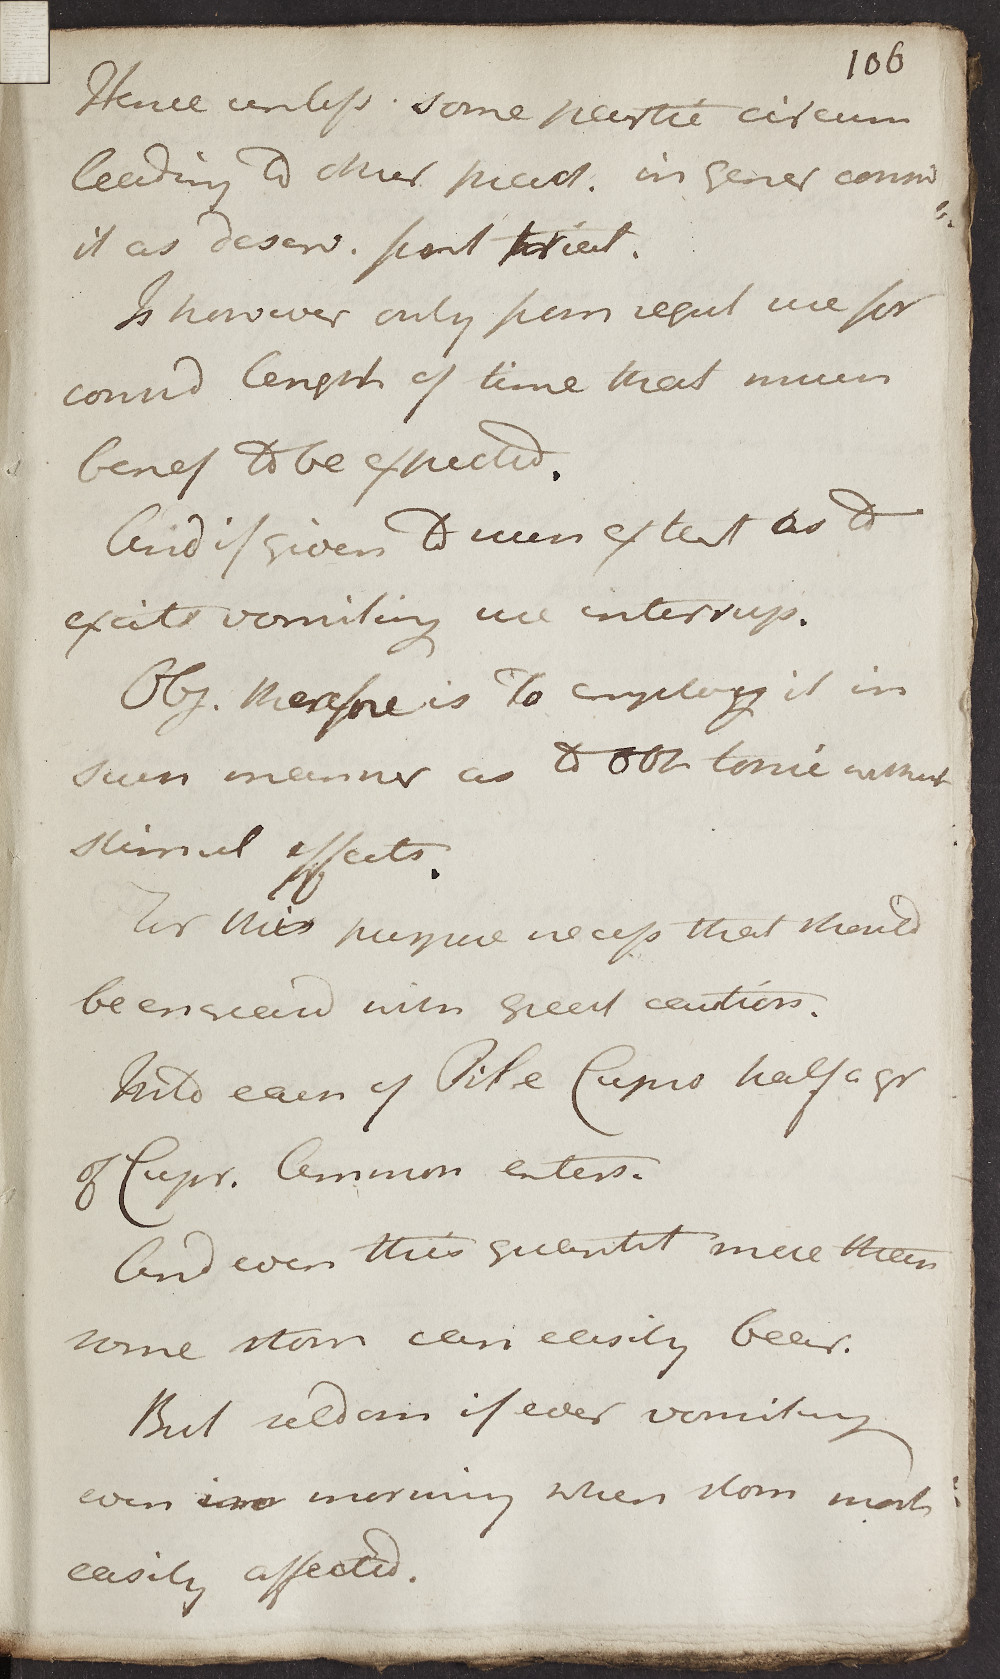 106
Hence unless some partic circum
leading to other pract. in gener consid
it as deserv. first trial.
Is however only from regul use for
consid length of time that much
benef to be expected.
And if given to such extent as to
excite vomiting use interrup.
Obj. therefore is to employ it in
such manner as to obt tonic without
stimul effects.
For this purpose necess that should
be encreasd with great caution.
Into each of Pil e Cupro half a gr
of Cupr. Ammon enters.
And even this quantit more than
some stom can easily bear.
But seldom if ever vomiting
even morning when stom most
easily affected.